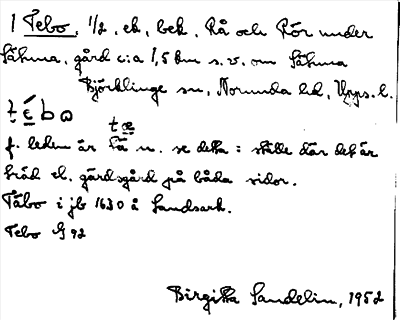 1 Tebo, 1/2, ek, bek, Rå och Rör under
Sähma, gård c:a 1,5 km s.v. om Sähma
Björklinge sn, Norunda hd, Upps. l.
tɛ́bɷ
tæ
f. leden är Tä n. se detta: ställe där det är
träd el. gärdsgård på båda sidor.
Täbo i jb 1630 å Landsark.
Tebo G 92
Birgitta Sandelin, 1952